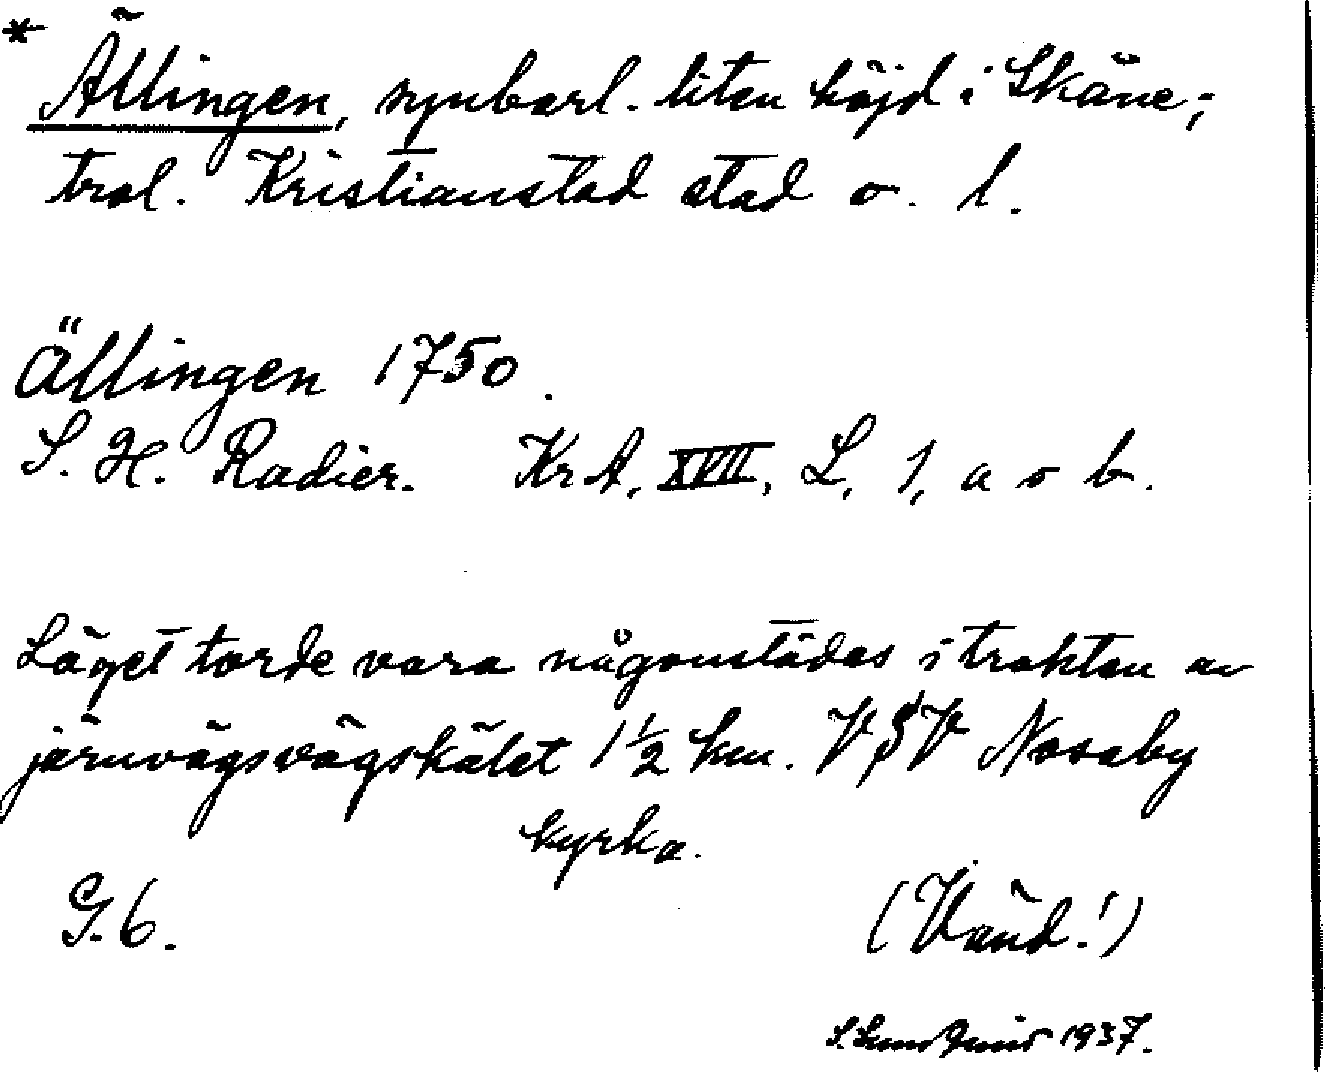 * Ällingen, synbarl. liten höjd i Skåne;
trol. Kristianstad stad o. l.
Ällingen 1750.
S. H. Radier. KrA, XVII, L, 1, a o b.
Läget torde vara någonstädes i trakten av
järnvägsvägskälet 1½ km. VSV Nosaby
kyrka.
G. 6. (Vänd!)
1937.